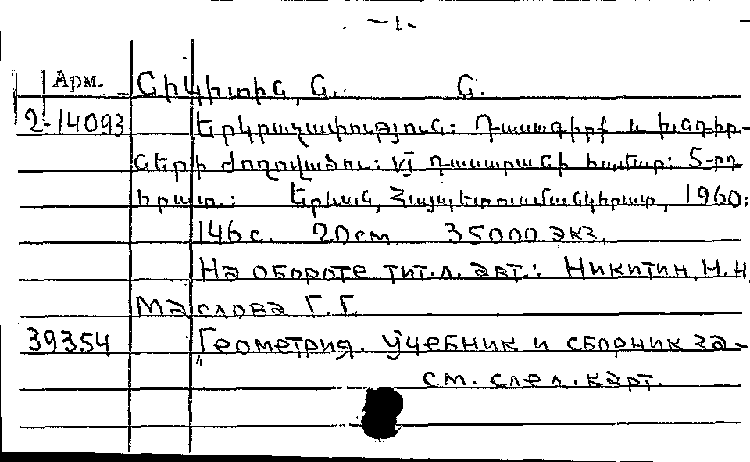 -1.
Арм. Նիկիտին, Ն. Ն.
2-14093 Երկրաչափություն: Դասագիրք և խնդիր-
ների ժողովածու: VI դասարանի համար: 5-րդ
հրատ.: Երևան, Հայպետուսմանկհրատ, 1960:
146 с. 20 см 35000 экз.
На обороте тит.л. авт.: Никитин, Н. Н,
Маслова Г. Г.
39354 Геометрия. Учебник и сборник за-
см. след. карт.